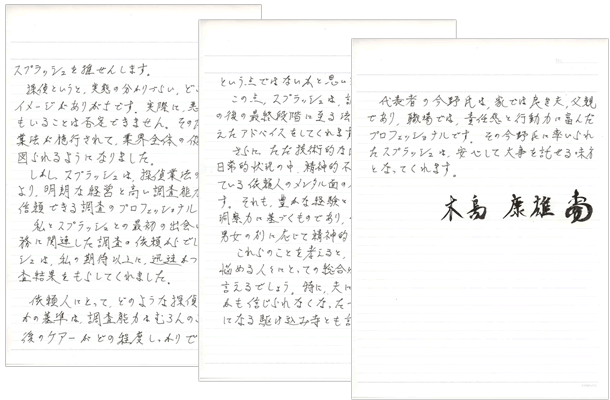 スプラッシュを推せんします。
探偵というと、実態の分かりづらい、どこ
イメージがありがちです。実際に、悪
もいることは否定できません。そのた
業法が施行されて、業界全体の
図られるようになりました。
しかし、スプラッシュは、探偵業法の
より、明朗な経営と高い調査能力
信頼できる調査のプロフェッショナル
私とスプラッシュとの最初の出会い
務に関連した調査の依頼からでし
シュは、私の期待以上に、迅速かつ
査結果をもらしてくれました。
依頼人にとって、どのような探偵
かの基準は、調査能力はもろんのこ
後のケアーがどの程度しっかりで
という点ではないかと思い
この点、スプラッシュは、
の後の最終段階に至る法
えたアドバイスもしてくれます
さらに、ただ技術的な
日常的状況の中、精神的不
ている依頼人のメンタル面の
す。それも、豊かな経験と
洞察力に基づくものであり、
男女の別に応じて精神的
これらのことを考えると、
悩める人々にとっての総合
言えるでしょう。特に、夫に
かも信じられなくなった
になる駆け込み寺とも言
代表者の今野氏は、家では良き夫、父親
であり、職場では、責任感と行動力に富んだ
プロフェッショナルです。その今野氏に率いられ
たスプラッシュは、安心して大事を託せる味方
となってくれます。
木島 康雄